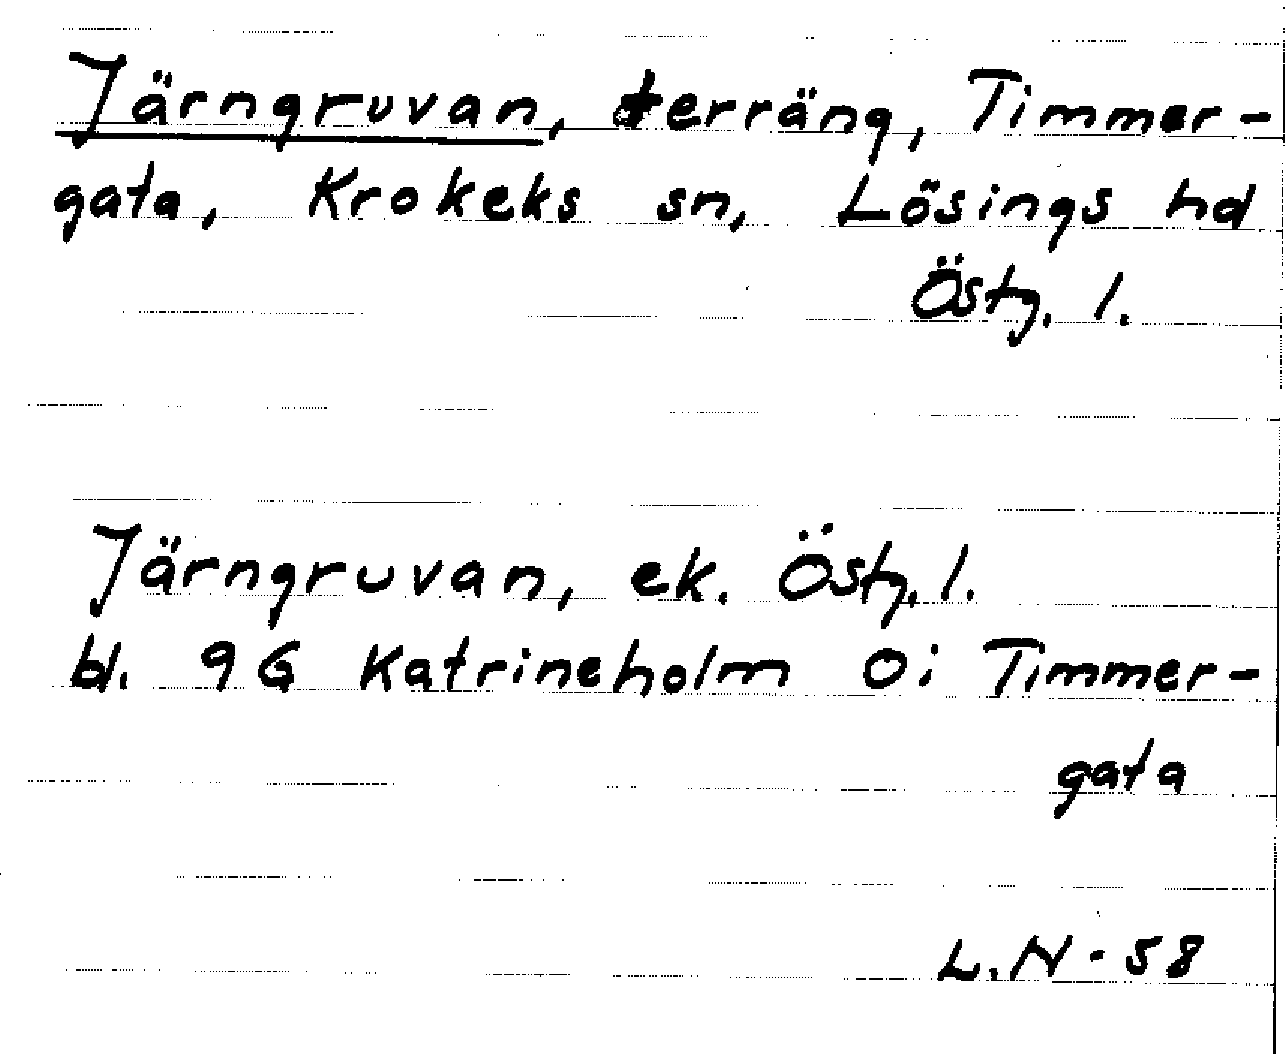 Järngruvan, terräng, Timmer-
gata, Krokeks sn, Lösings hd
Östg. l.
Järngruvan, ek. Östg. l.
bl. 9G Katrineholm 0i Timmer-
gata
L.N - 58